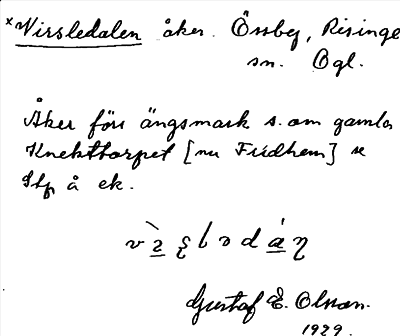 ×Virsledalen åker. Össby, Risinge
sn. Ögl.
Åker förr ängsmark s. om gamla
Knekttorpet [nu Fridhem] se
Stp å ek.
Gustaf E. Olsson.
1929.